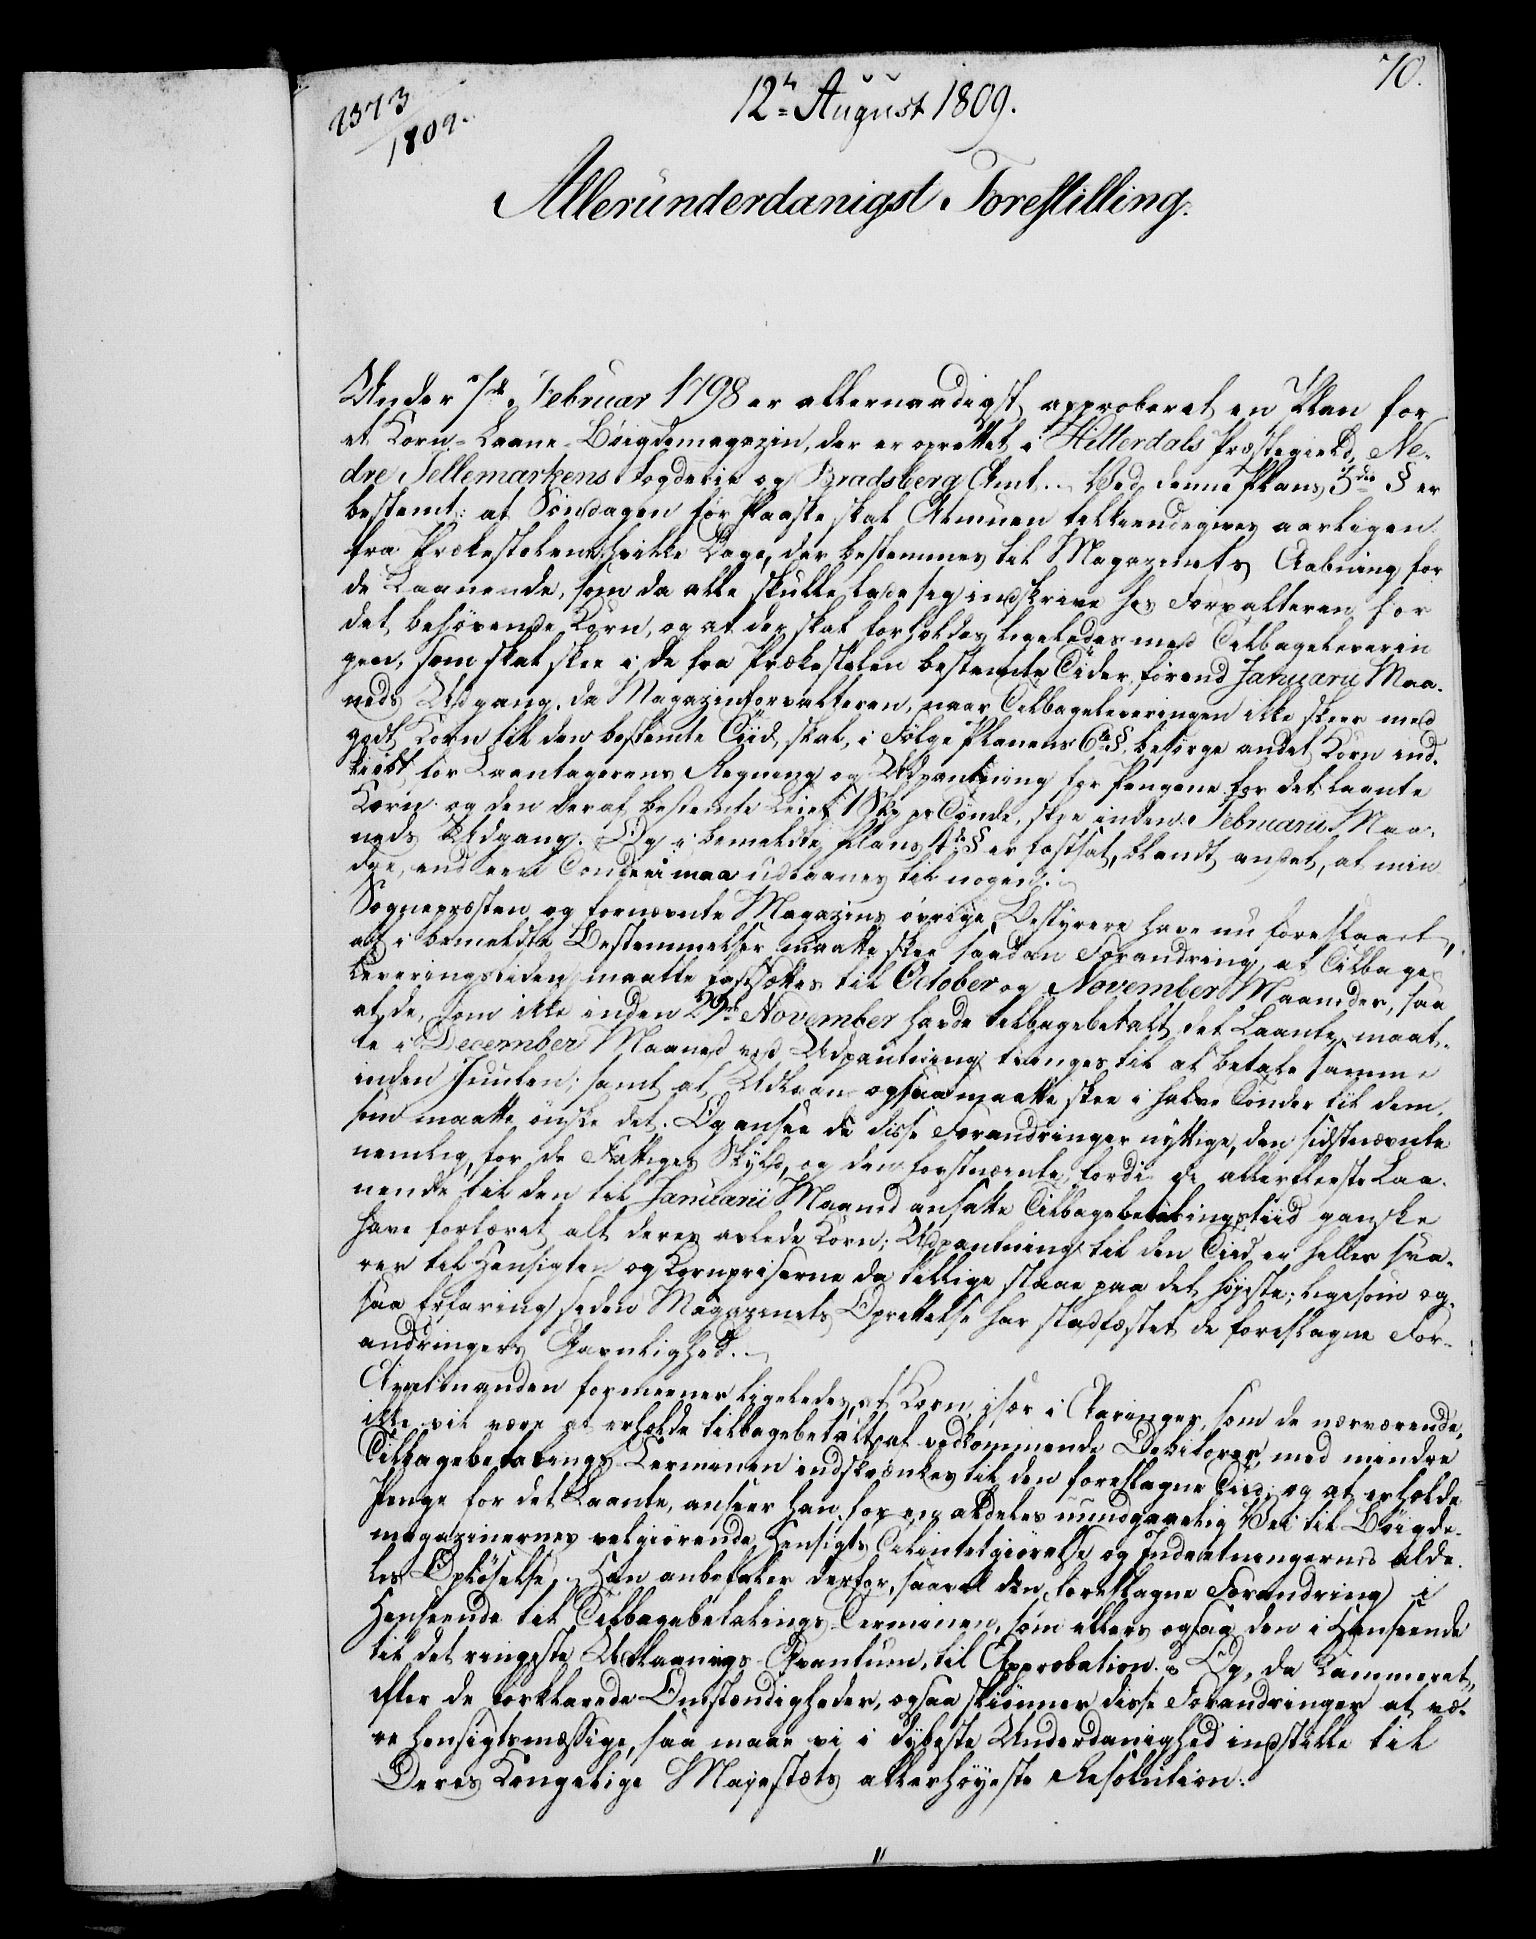 70.
2373
1809.
12te August 1809.
Allerunderdanigst Forestilling.
Under 7de Februar 1798 er allernaadigst approberet en Plan for
et Korn-Laane-Böigdemagazin, der er oprettet i Hitterdals Præstegield, Ne-
dre Tellemarkens Fogderie og Bradsberg Amt. Ved denne Plans 3die § er
bestemt: at Söndagen för Paaske skal Almuen tilkiendegives aarligen
fra Prækestolen hvilke Dage, der bestemmes til Magazinets Aabning for
de Laanende, som da alle skulle lade sig indskrive hos Forvalteren for
det behövende Korn, og at der skal forholdes ligeledes med Tilbageleverin
gen, som skal skee i de fra Prækestolen bestemte Tider, förend Januarii Maa-
neds Udgang, da Magazinforvalteren, naar Tilbageleveringen ikke skeer med
godt Korn til den bestemte Tiid, skal, i Fölge Planens 6te §, besörge andet Korn ind-
kiöbt for Laantagerens Regning og Udpantning for Pengene for det laante
Korn og den deraf bestemte Leie 1 Skp pr Tönde, skee inden Februarii Maa-
neds Udgang. Og i bemeldte Plans 4de § er fastsat, blandt andet, at min
dre, end een Tönde ei maa udlaanes til nogen.
Sognepræsten og fornævnte Magazins övrige Bestyrere have nu foreslaaet,
at i bemeldte Bestemmelser maatte skee saadan Forandring, at Tilbage
leveringstiden maatte fastsættes til October og November Maaneder, saa
at de, som ikke inden 29de November havde tilbagebetalt det Laante, maat-
te i December Maaned ved Udpantning tvinges til at betale samme
inden Juulen; samt at Udlaan ogsaa maatte skee i halve Tönder til dem,
som maatte önske det. Og ansee de disse Forandringer nyttige, den sidstnævnte
nemlig, for de Fattiges Skyld, og den förstnævnte, fordi de allerfleeste Laa-
nende til den til Januarii Maaned ansatte Tilbagebetalingstiid ganske
have fortæret alt deres avlede Korn; Udpantning til den Tiid ei heller sva-
rer til Hensigten og Kornpriserne da tillige staae paa det höyeste; ligesom og-
saa Erfaring siden Magazinets Oprettelse har stadfæstet de foreslagne For-
andringers Gavnlighed.
Amtmanden formeener ligeledes, at Korn, især i Aaringer, som de nærværende,
ikke vil være at erholde tilbagebetalt af vedkommende Debitorer, med mindre
Tilbagebetalings-Terminen indskrænkes til den foreslagne Tiid; og at erholde
Penge for det Laante, anseer han for en aldeles uundgaaelig Vei til Böigde-
magazinernes velgiörende Hensigts Tilintetgiörelse og Indretningernes alde-
les Oplöselse. Han anbefaler derfor, saavel den foreslagne Forandring i
Henseende til Tilbagebetalings-Terminen, som ellers ogsaa den i Henseende
til det ringeste Udlaanings-Qvantum, til Approbation. Og, da Kammeret,
efter de forklarede Omstændigheder, ogsaa skiönner disse Forandringer at væ-
re hensigtsmæssige, saa maae vi i dybeste Underdanighed indstille til
Deres Kongelige Majestæts allerhöyeste Resolution: